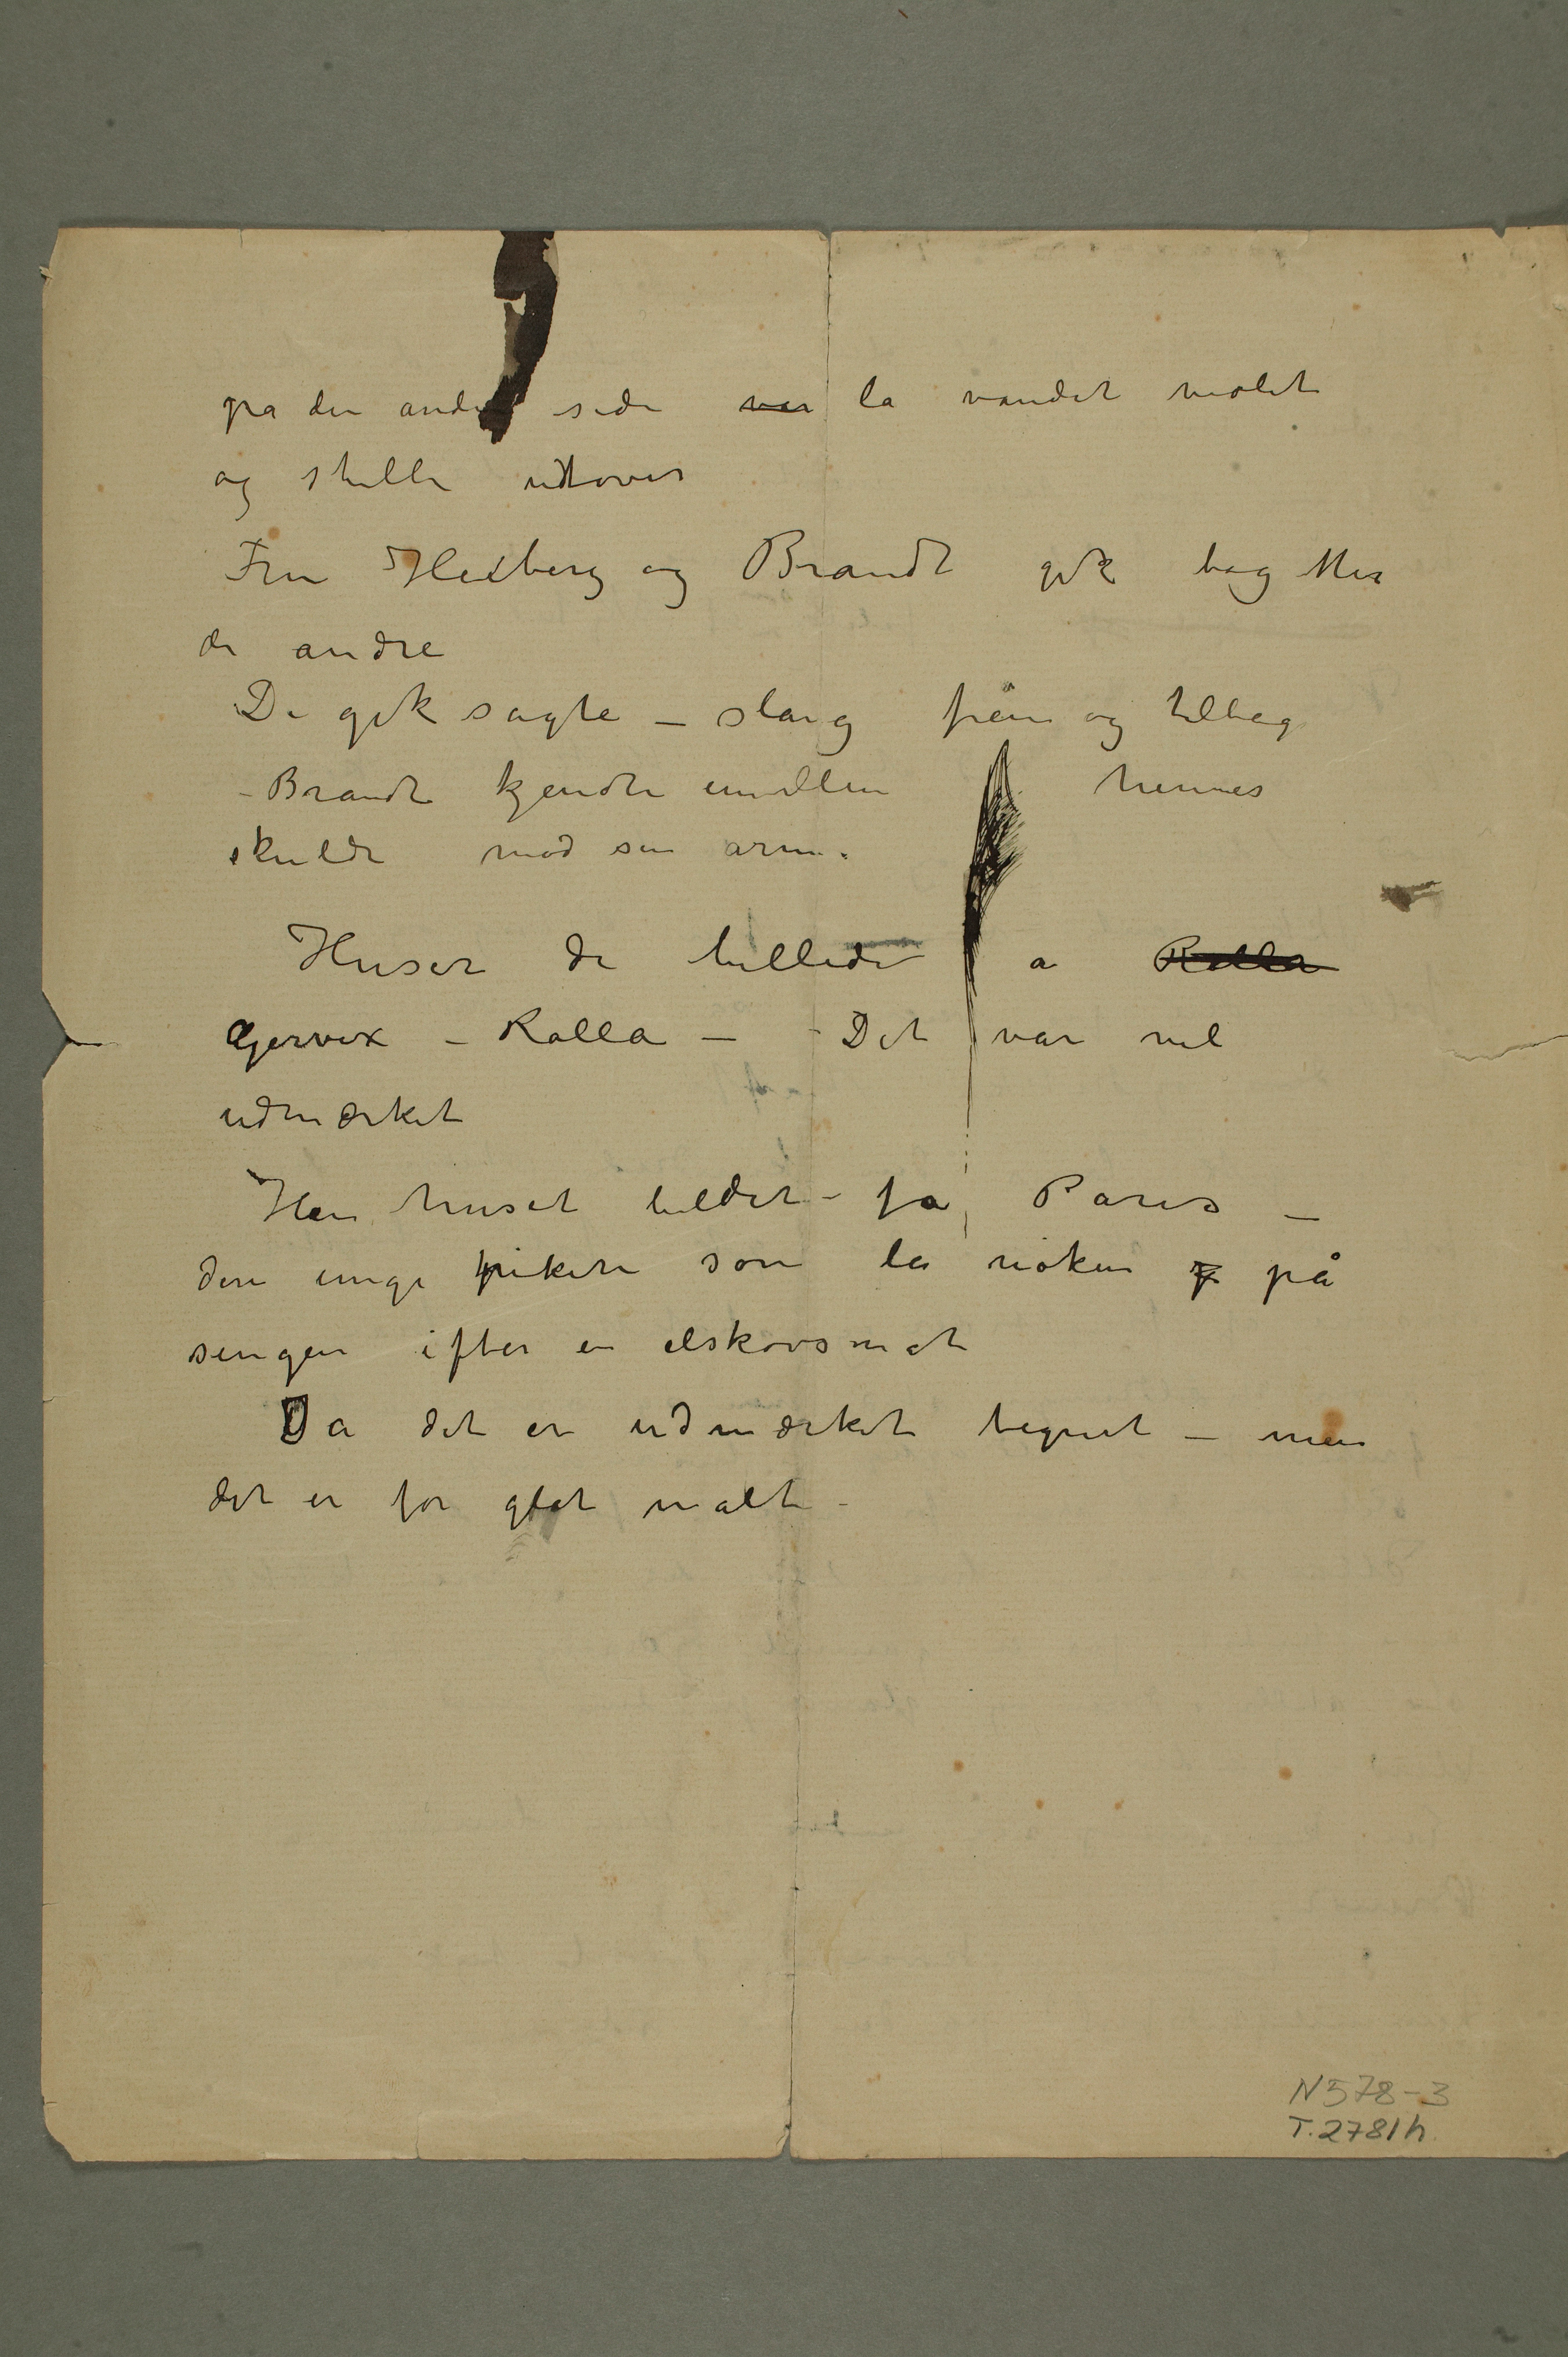 pa den andre side var la vandet violet
og stille udover
Fru Heiberg og Brandt gik bag
de andre
De gik sagte – slang främ og tilbag
– Brandt kjendte imellem hennes
skulde mod sin arm.
Huser de billede a Rolla
Gervex – Rolla – – Det var vel
udmærket
Han huset billdet – fa Paris –
den unge piken som la nöken på
sengen efter en elskovsnat
Ja det er udmærket tegnet – men
det er for glat malt –
N578-3
T.2781h.